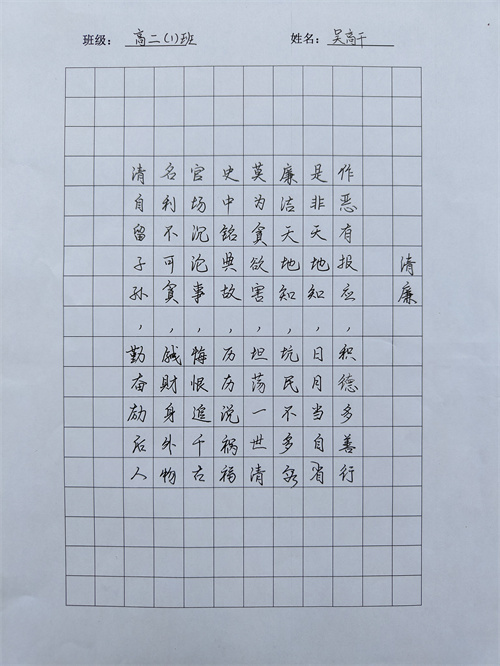 班级：高二(1)班 姓名：吴高干
清廉
作恶有报应，积德多善行
是非天地知，日月当自省
廉洁天地知，坑民不多
莫为貪欲害，坦荡一世清
史中銘典故，历历说祸福
官场沉沦事，悔恨追千古
名利不可貪，財身外物
清自留子孙，勤奋励后人